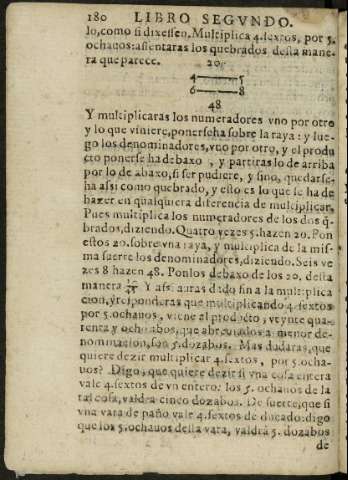 180 LIBRO SEGVNDO.
lo, como si dixessen. Multiplica 4. sextos, por 5.
ochauos: assentaras los quebrados desta mane-
ra que parece. 20.
4 5
6 8
48
Y multiplicaras los numeradores vno por otro
y lo que viniere, ponerseha sobre la raya: y lue-
go los denominadores, vno por otro, y el produ
cto ponerse ha debaxo, y partiras lo de arriba
por lo de abaxo, si ser pudiere, y sino, quedarse-
ha assi como quebrado, y esto es lo que se ha de
hazer en qualquiera diferencia de multiplicar.
Pues multiplica los numeradores de los dos q̃-
brados, diziendo. Quatro vezes 5. hazen 20. Pon
estos 20. sobre vna raya, y multiplica de la mis-
ma suerte los denominadores, diziendo. Seis ve
zes 8 hazen 48. Ponlos debaxo de los 20. desta
manera 20/48 Y assi auras dado fin a la multiplica
cion, y responderas que multiplicando 4. sextos
por 5. ochauos, viene al producto, veynte qua-
renta y ochoabos, que abreuiados a menor de-
nominacion, son 5. dozabos. Mas dudaras, que
quiere dezir multiplicar 4. sextos, por 5. ocha-
uos? Digo, que quiere dezir si vna cosa entera
vale 4. sextos de vn entero: los 5. ochauos de la
tal cosa, valdra cinco dozabos. De suerte, que si
vna vara de paño vale 4. sextos de ducado: digo
que los 5. ochauos desta vara, valdrá 5. dozabos
de